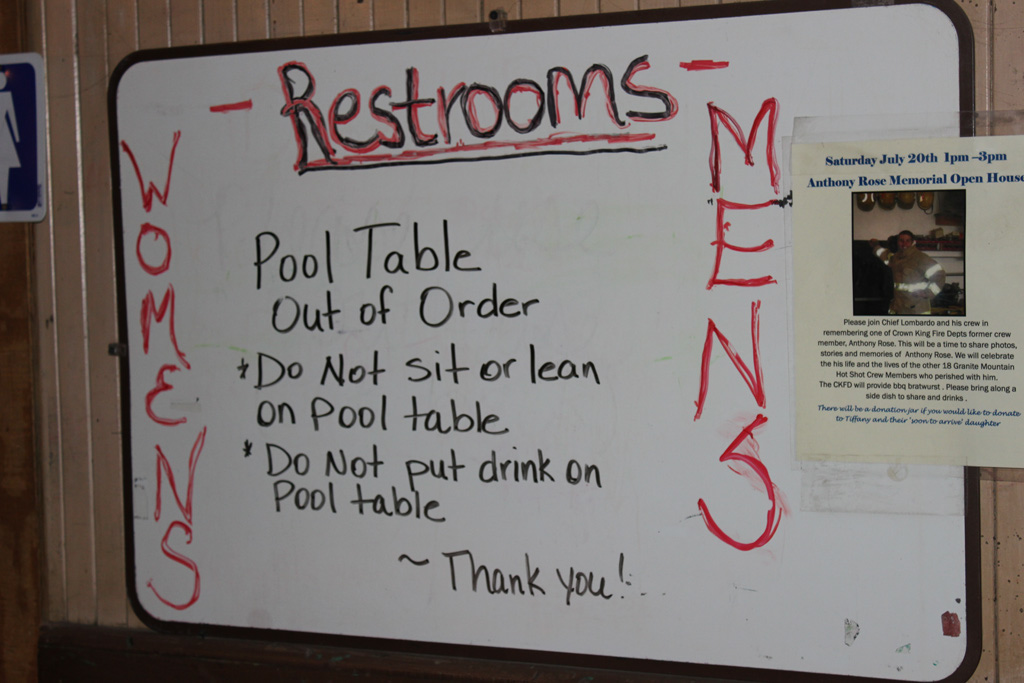 - Restrooms -
WOMENS
Pool Table
Out of Order
* Do Not sit or lean
on Pool table
* Do Not put drink on
Pool table
~ Thank you!
MENS
Saturday July 20th 1pm –3pm
Anthony Rose Memorial Open House
Please join Chief Lombardo and his crew in
remembering one of Crown King Fire Depts former crew
member, Anthony Rose. This will be a time to share photos,
stories and memories of Anthony Rose. We will celebrate
the his life and the lives of the other 18 Granite Mountain
Hot Shot Crew Members who perished with him.
The CKFD will provide bbq bratwurst . Please bring along a
side dish to share and drinks .
There will be a donation jar if you would like to donate
to Tiffany and their 'soon to arrive' daughter